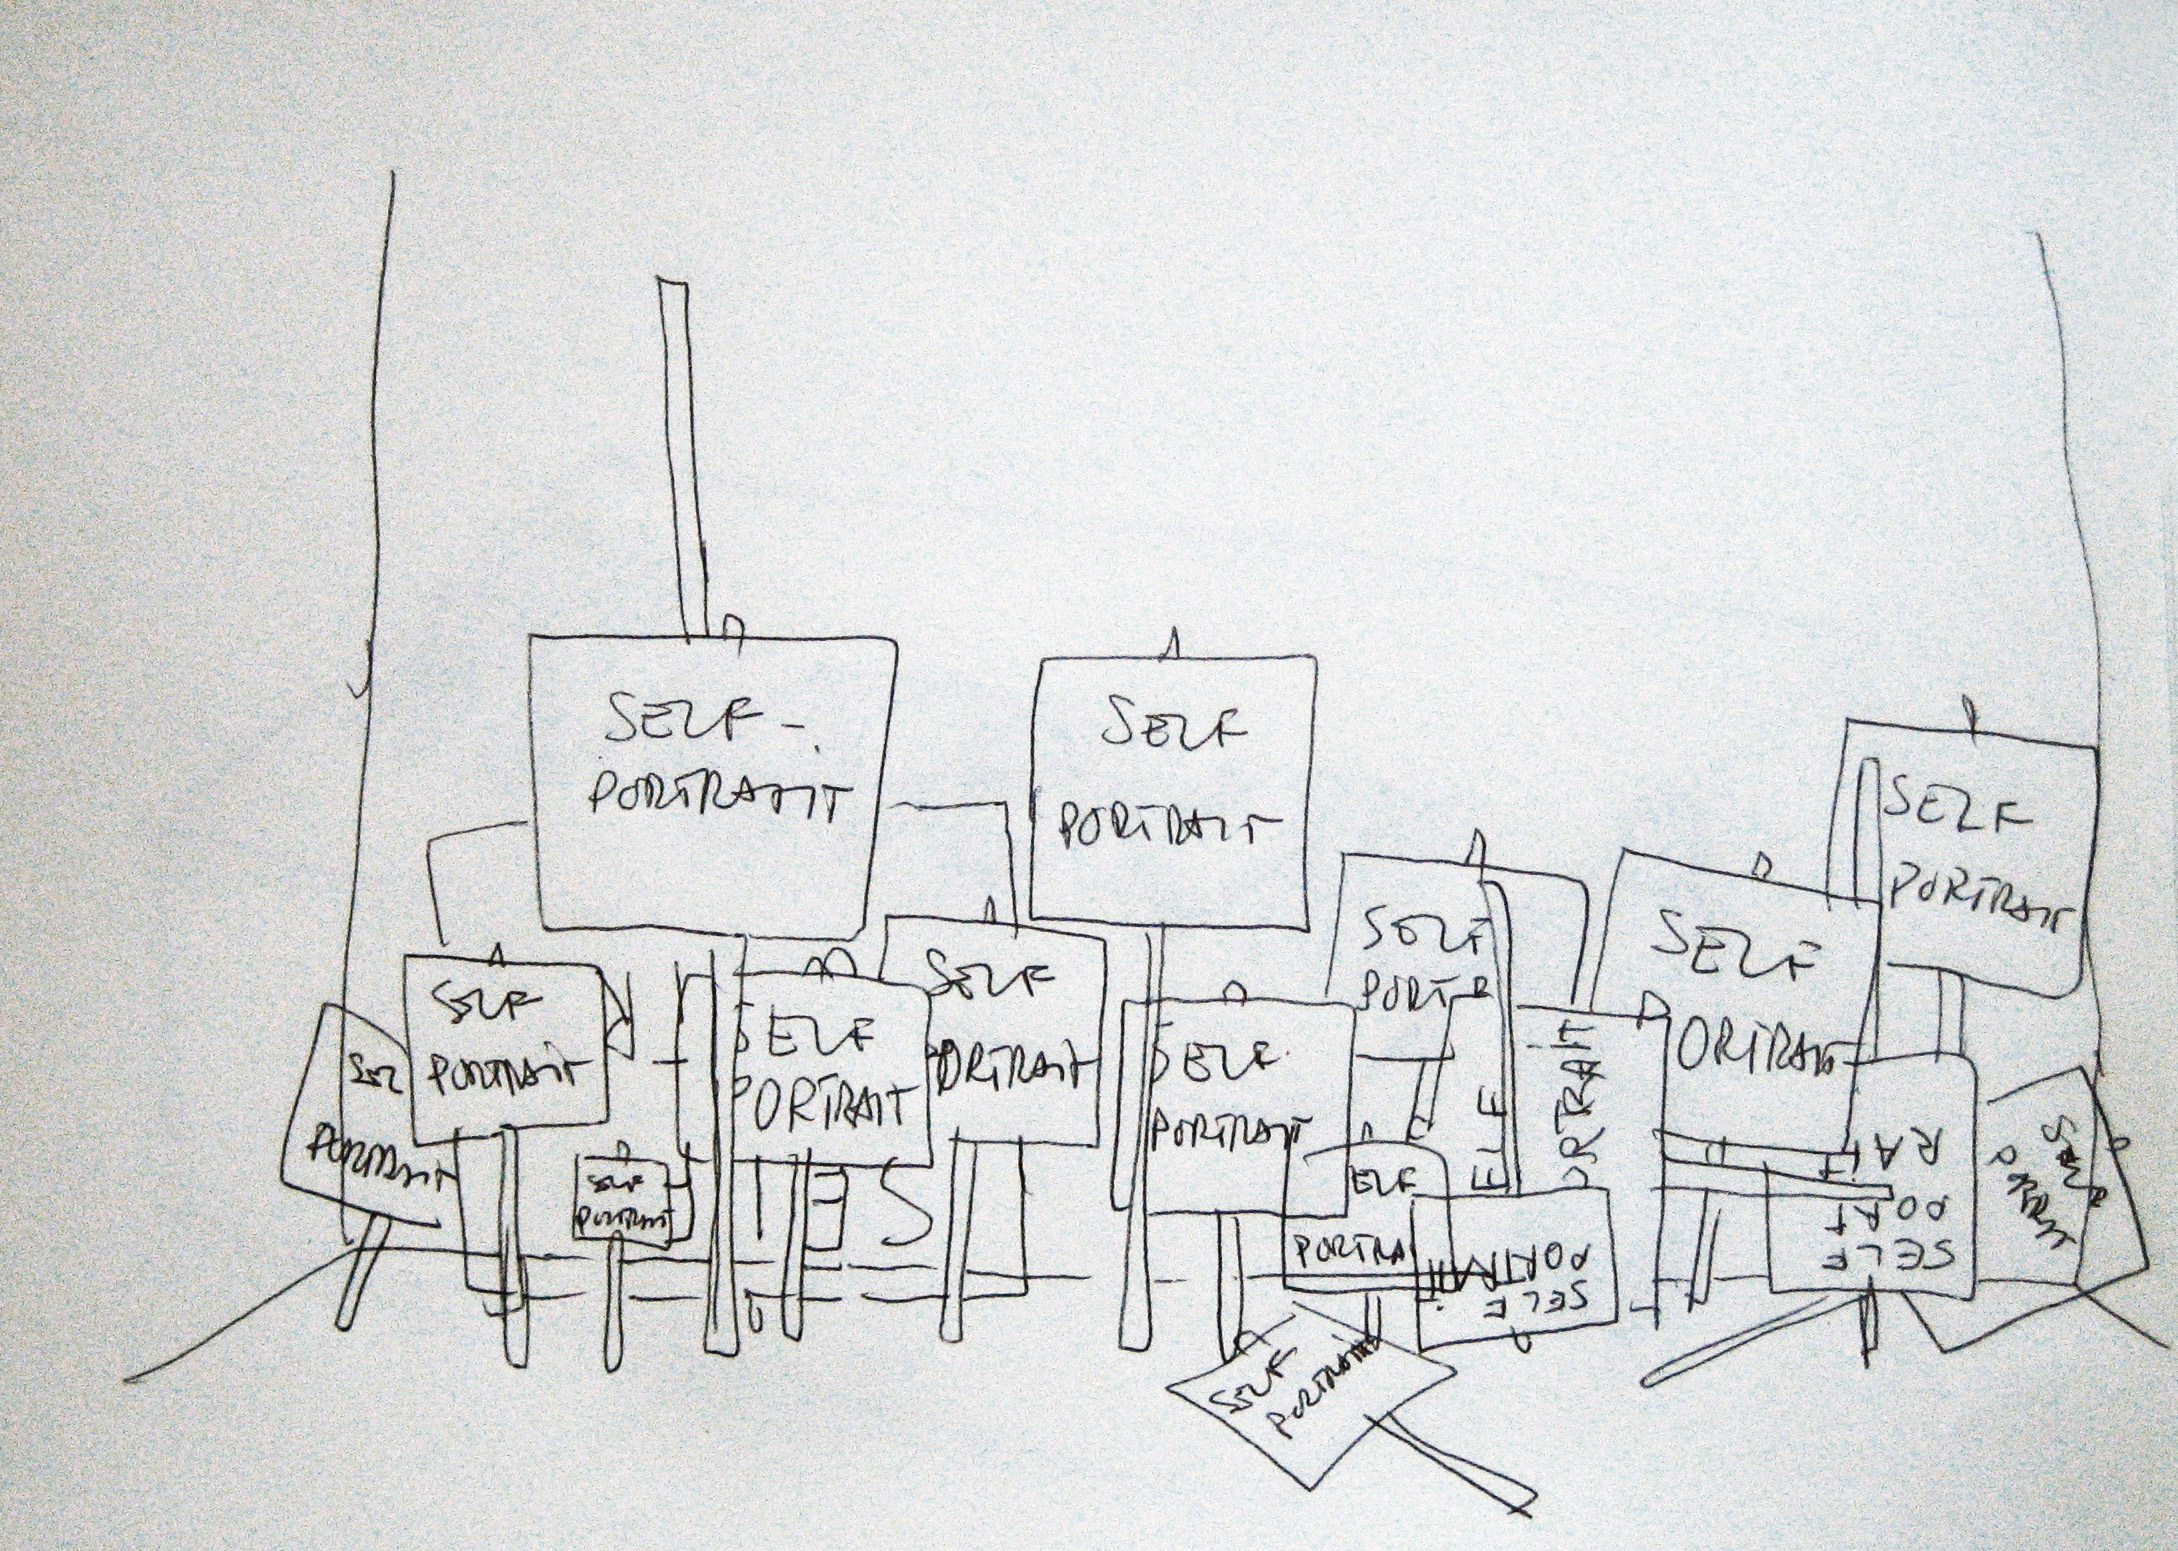 SELF-
PORTRAIT
SELF
PORTRAIT
SELF
PORTRAIT
SELF
PORTRAIT
SELF
ORTRAIT
SELF
PORTR
SELF
PORTRAIT
SELF
ORTRAIT
SELF
PORTRAIT
SELF
PORTRAIT
PORTRAIT
SELF
PORTRAIT
ELF
PORTRA
ELF
ORTRAIT
SELF
PORTRAIT
SELF
PORT
RAIT
SELF
PORTRAIT